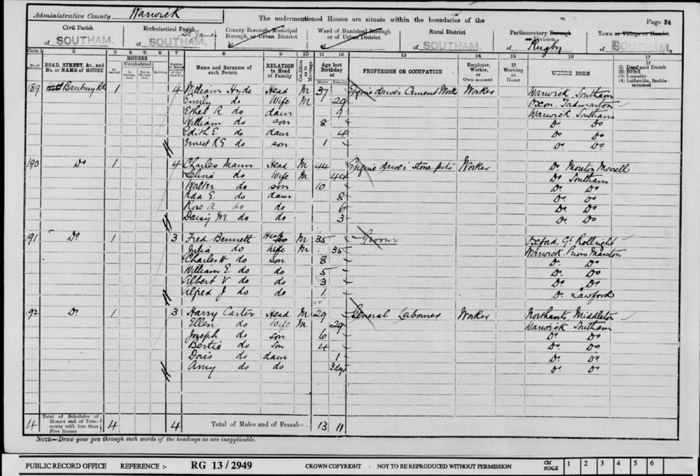 Administrative County Warwick
The undermentioned Houses are situate within the boundaries of the
Page 34
Civil Parish
of SOUTHAM.
Ecclesiastical Parish
of St. James
SOUTHAM.
County Borough, Municipal Borough, or Urban District
of
Ward of Municipal Borough or Urban District
of
Rural District
of SOUTHAM.
Parliamentary Borough or Division
of Rugby
Town or Village or Hamlet
of SOUTHAM.
ROAD, STREET, &c., and No. or NAME of HOUSE
HOUSES
Name and Surname of each Person
RELATION to Head of Family
Age last Birthday of
PROFESSION OR OCCUPATION
Employer, Worker, or Own account
If Working at Home
WHERE BORN
189 Banbury Rd 1 4 William Hyde Head M 37 Engine driver Cement Works Worker Warwick Southam
Emily do Wife M 29 Oxon. Tadmarton
Ethel R do daur 9 Warwick Southam
William do son 8 Do Do
Edith E do daur 4 Do Do
Ernest R G do son 1 Do Do
190 Do 1 4 Charles Mann Head M 44 Engine driver Stone pits Worker Do Moreton Morrell
Selina do Wife M 44 Do Southam
Walter do son 10 Do Do
Ada E do daur 8 Do Do
Rose A do do 6 Do Do
Daisy M do do 3 Do Do
191 Do 1 3 Fred Bennett Head M 35 Groom Oxford, Gt Rollright
Julia do Wife M 35 Warwick, Priors Marston
Charles H do son 8 Do Do
William E do do 5 Do Do
Albert V do do 3 Do Do
Alfred J do do 1 Do Lawford
192 Do 1 3 Harry Carter Head M 29 General Labourer Worker Northants Middleton
Ellen do Wife M 29 Warwick Southam
Joseph do son 6 Do Do
Bertie do Son 4 Do Do
Doris do daur 1 Do Do
Amy do do 3 days Do Do
4 Total of Schedules of Houses and of Tenements with less than Five Rooms 4 4 Total of Males and of Females 13 11
NOTE—Draw your pen through such words of the headings as are inapplicable.
PUBLIC RECORD OFFICE REFERENCE :- RG 13/2949 CROWN COPYRIGHT - NOT TO BE REPRODUCED WITHOUT PERMISSION
CM SCALE 1 2 3 4 5 6